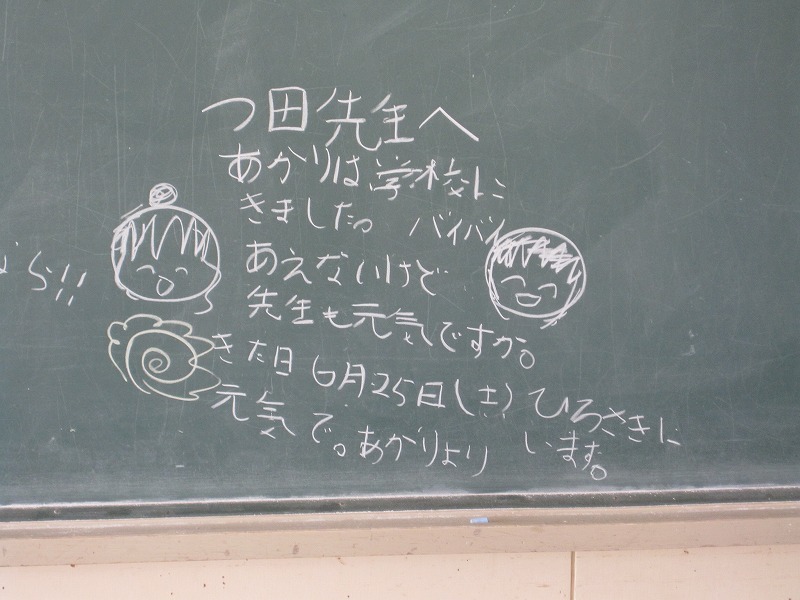 つ田先生へ
あかりは学校に
きました。 バイバイ
あえないけど
先生も元気ですか。
きた日 6月25日(土) ひろさきに
元気で。あかりより います。
ら!!